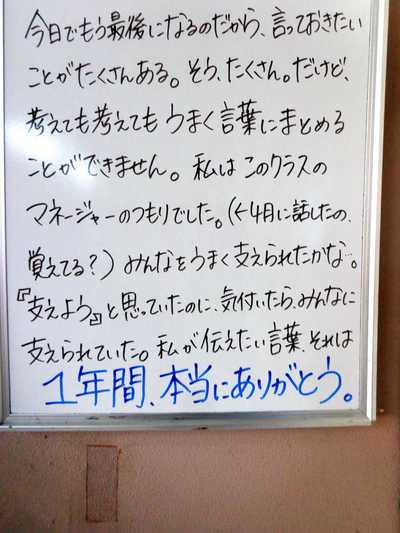 今日でもう最後になるのだから、言っておきたい
ことがたくさんある。そう、たくさん。だけど、
考えても考えてもうまく言葉にまとめる
ことができません。私はこのクラスの
マネージャーのつもりでした。(←4月に話したの、
覚えてる?)みんなをうまく支えられたかな…。
『支えよう』と思っていたのに、気付いたらみんなに
支えられていた。私が伝えたい言葉、それは
1年間、本当にありがとう。